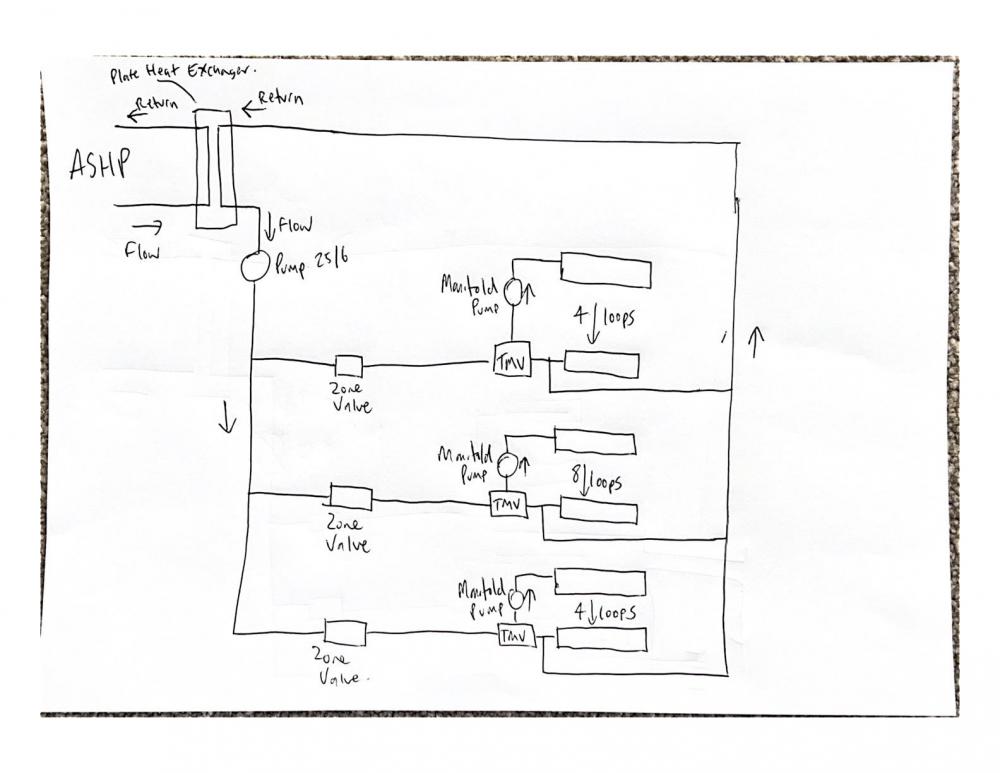 Plate Heat Exchanger.
Return
Return
ASHP
Flow
Flow
Pump 25/6
Manifold
Pump
4 loops
TMV
Zone
Valve
Manifold
Pump
8 loops
TMV
Zone
Valve
Manifold
Pump
4 loops
TMV
Zone
Valve.